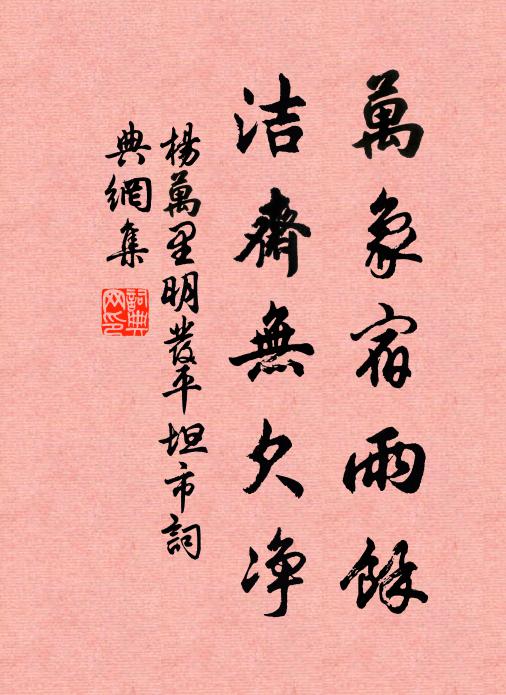 萬象宿雨餘
洁齋無久净
楊萬里明發平坦市詞
典網集
詞典
网印